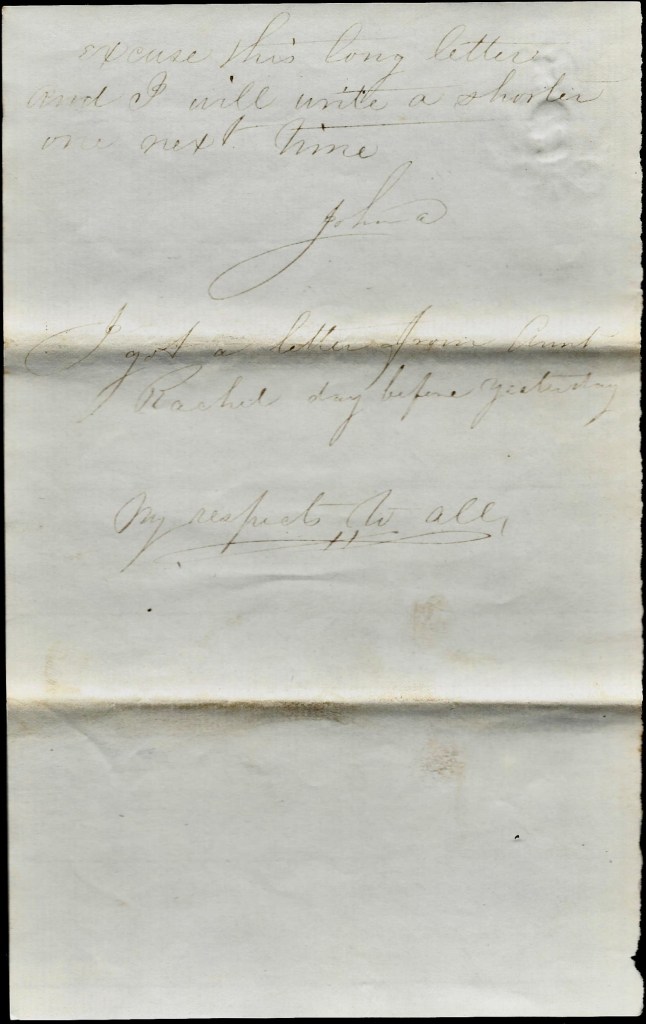 excuse this long letter
and I will write a shorter
one next time
John a
I got a letter from Aunt
Rachel day before yesterday
My respects to all,